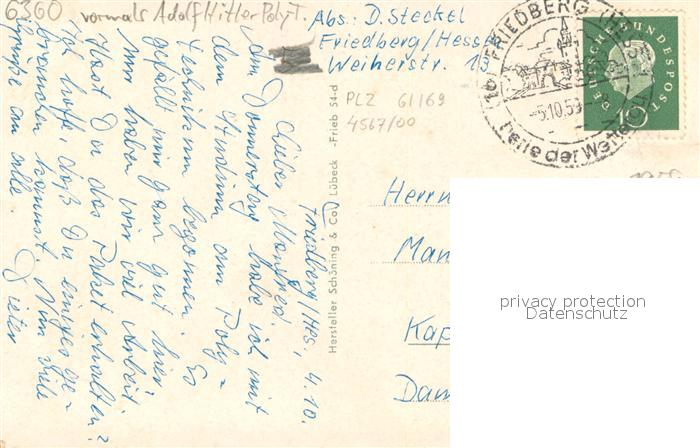 6360 vormals Adolf Hitler Poly T.
Abs: D. Steckel
Friedberg/Hessen
Weiherstr. 13
PLZ 61169
4567/00
(16) FRIEDBERG (HESS)
-5.10.59
Perle der Wetterau
DEUTSCHE BUNDESPOST
10
Friedberg/Hes., 4.10.
Lieber Manfred!
Am Donnerstag habe ich mit
dem Studium am Poly-
technikum begonnen. Es
gefällt mir ganz gut hier
nur haben wir viel Arbeit.
Hast Du das Paket erhalten?
Ich hoffe, daß Du einiges ge-
brauchen kannst. Nun viele
Grüße an alle. Dieter
Hersteller Schöning & Co., Lübeck -Frieb 54-d
Herrn
Man
Kap
Dam
privacy protection
Datenschutz